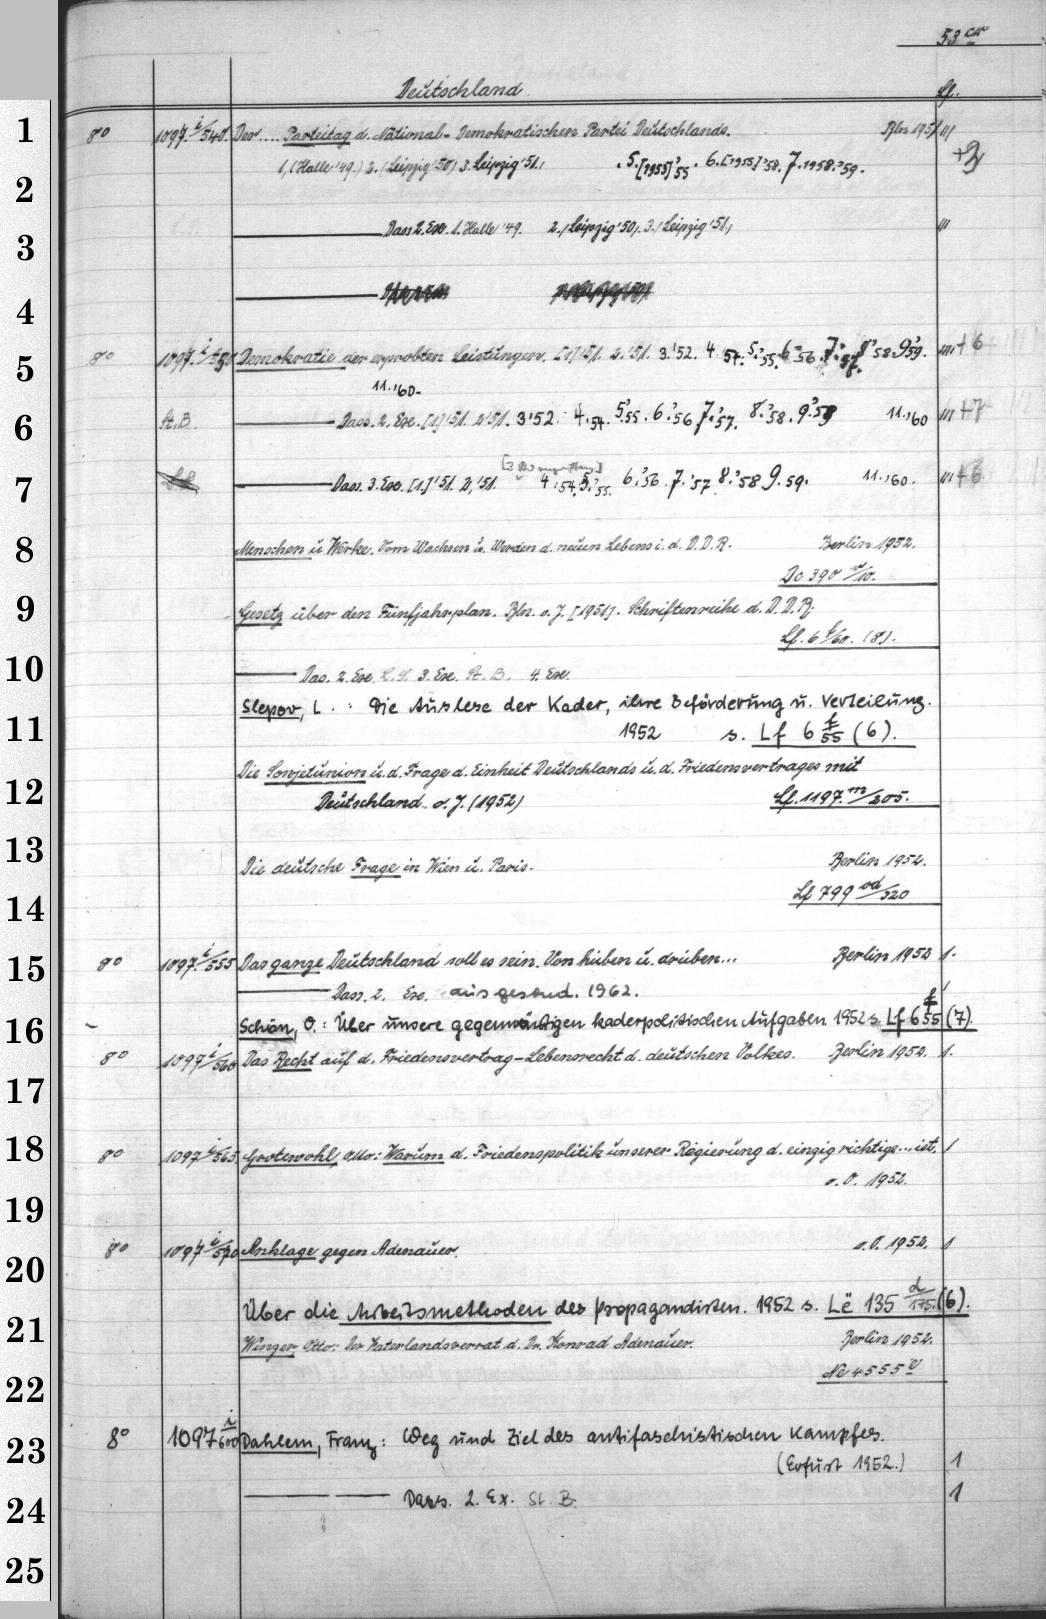 53 cw
Deutschland. Lf.
1 8° 1097.i/540. Der .... Parteitag d. National-Demokratischen Partei Deutschlands. Bln 1951 III
1, (Halle '49.) 2. (Leipzig '50) 3. Leipzig '51, . 5. [1955]'55 . 6. [1955]'58. 7. 1958.'59. +2
2
3 Dass. 2. Exe. 1. Halle '49. 2., Leipzig '50, 3., Leipzig '51, III
4
5 8° 1097.i/550 Demokratie der erprobten Leistungen. [1]'51. 2.'51. 3.'52. 4.'54. 5.'55. 6.'56 7.'57. 8.'58 9.'59. III +6
11.'60.
6 St.B. Dass. 2. Exe. [1]'51. 2.'51. 3.'52. 4.'54. 5.'55. 6.'56 7.'57. 8.'58. 9.'59 11.'60 III +7
7 Dass. 3. Exe. [1.]'51. 2.'51. 4.'54. 5.'55. 6.'56. 7.'57 8.'58 9.59. 11.'60. III +6
8 Menschen u. Werke. Vom Wachsen u. Werden d. neuen Lebens i. d. D.D.R. Berlin 1952.
Do 390 w/10.
9 Gesetz über den Fünfjahrplan. Bln. o. J. [1951]. Schriftenreihe d. D.D.R.
Lf. 6 f/60. (8).
10 Das. 2. Exe. 3. Exe. St. B. 4. Exe.
Slepov, L. : Die Auslese der Kader, ihre Beförderung u. Verteilung.
11 1952 s. Lf 6 f/55 (6).
Die Sowjetunion u. d. Frage d. Einheit Deutschlands u. d. Friedensvertrages mit
12 Deutschland. o. J. (1952) Lf. 1197. m/205.
13 Die deutsche Frage in Wien u. Paris. Berlin 1952.
Lf 799 od/320
14
15 8° 1097.i/555 Das ganze Deutschland soll es sein. Von hüben u. drüben... Berlin 1952 1.
Dass. 2. Exe. ausgesond. 1962.
16 Schön, O.: Über unsere gegenwärtigen kaderpolitischen Aufgaben 1952 s. Lf 6 f/55 (7).
8° 1097 i/560 Das Recht auf d. Friedensvertrag - Lebensrecht d. deutschen Volkes. Berlin 1952. 1.
17
18 8° 1097 i/565 Grotewohl, Otto: Warum d. Friedenspolitik unserer Regierung d. einzig richtige... ist. 1
o. O. 1952.
19
8° 1097 i/570 Anklage gegen Adenauer. o. O. 1952. 1
20
Über die Arbeitsmethoden des Propagandisten. 1952 s. Lë 135 d/175. (6).
21 Winzer Otto: Der Vaterlandsverrat d. Dr. Konrad Adenauer. Berlin 1952.
22 Ne 4555 v
23 8° 1097 i/600 Dahlem, Franz: Weg und Ziel des antifaschistischen Kampfes.
(Erfurt 1952.) 1
24 Dass. 2. Ex. St. B. 1
25